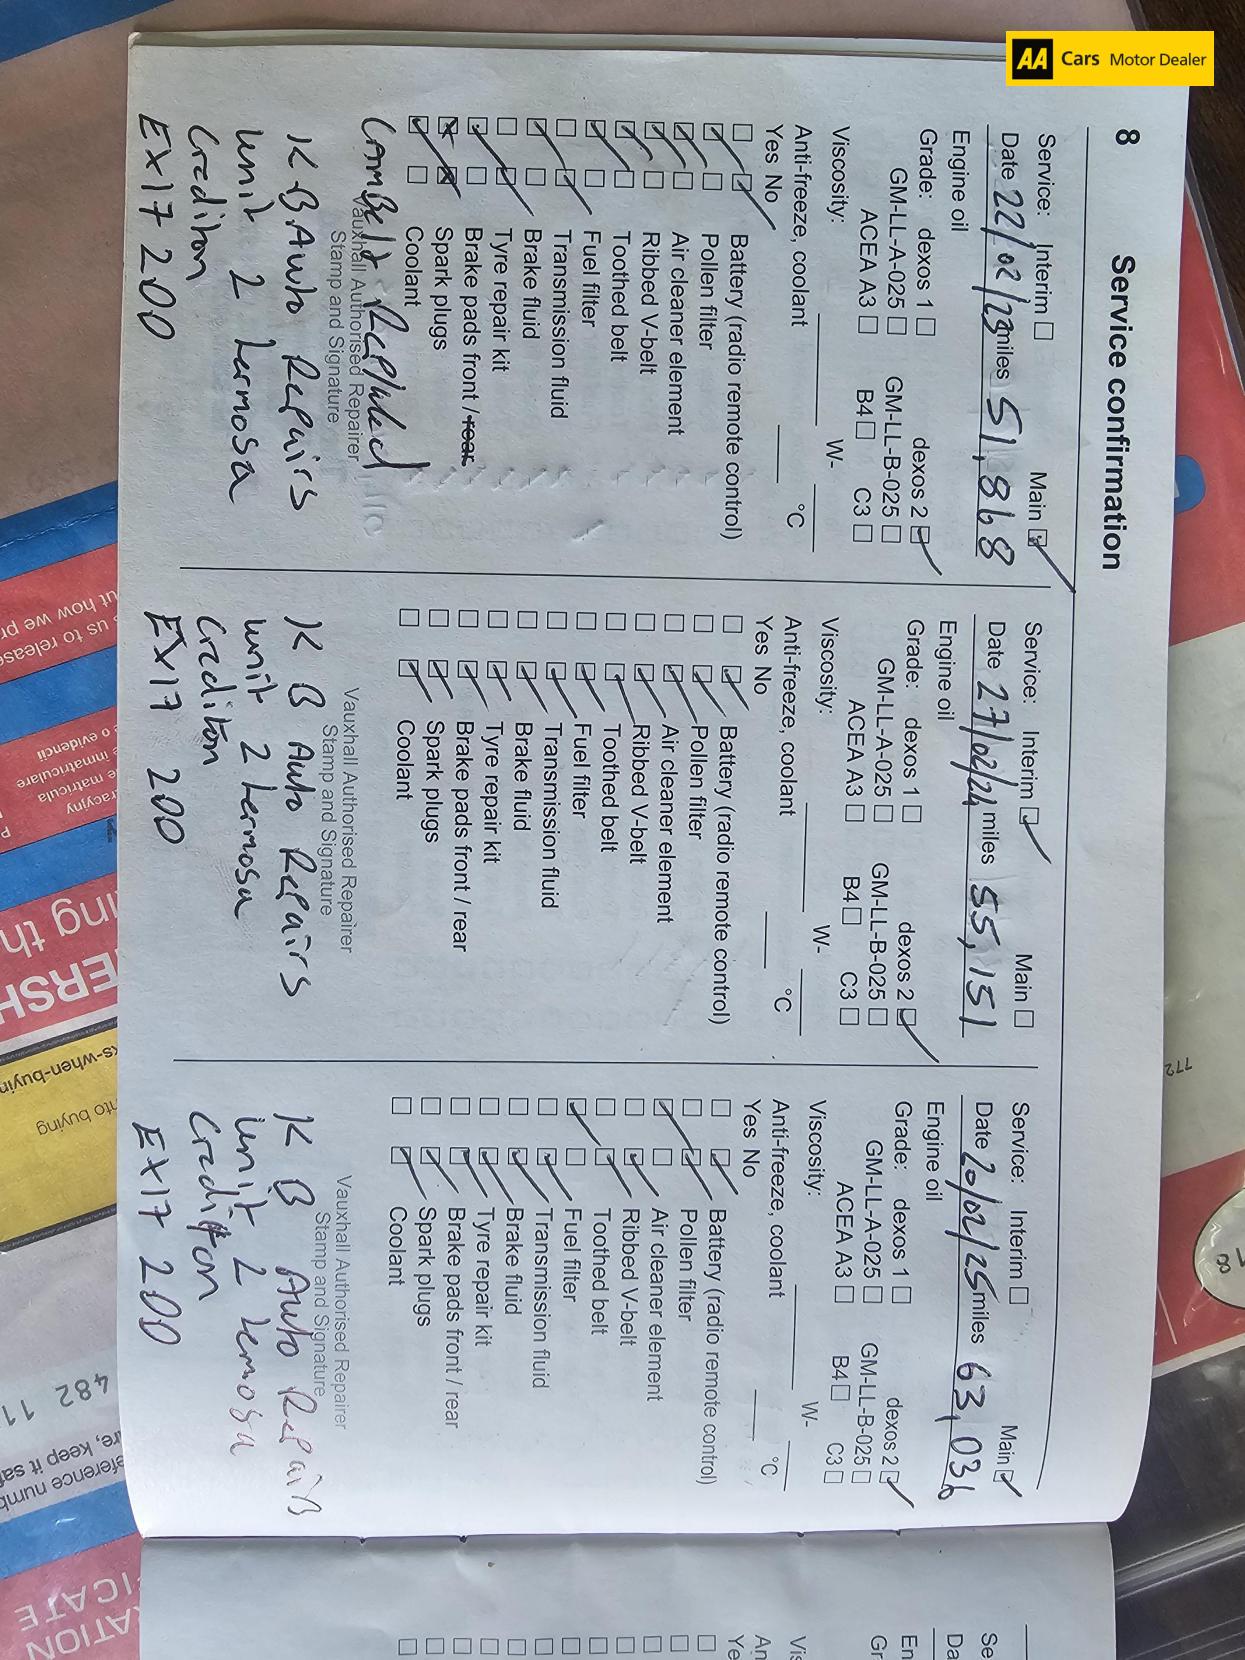 AA Cars Motor Dealer
8 Service confirmation
Service: Interim ☐ Main ☑
Date 22/02/23 miles 51,868
Engine oil
Grade: dexos 1 ☐ dexos 2 ☑
GM-LL-A-025 ☐ GM-LL-B-025 ☐
ACEA A3 ☐ B4 ☐ C3 ☐
Viscosity: W-
Anti-freeze, coolant °C
Yes No
Battery (radio remote control)
Pollen filter
Air cleaner element
Ribbed V-belt
Toothed belt
Fuel filter
Transmission fluid
Brake fluid
Tyre repair kit
Brake pads front / rear
Spark plugs
Coolant
CamBelt Replaced
Vauxhall Authorised Repairer
Stamp and Signature
K B Auto Repairs
Unit 2 Lermosa
Crediton
EX17 2DD
Service: Interim ☑ Main ☐
Date 27/02/24 miles 55,151
Engine oil
Grade: dexos 1 ☐ dexos 2 ☑
GM-LL-A-025 ☐ GM-LL-B-025 ☐
ACEA A3 ☐ B4 ☐ C3 ☐
Viscosity: W-
Anti-freeze, coolant °C
Yes No
Battery (radio remote control)
Pollen filter
Air cleaner element
Ribbed V-belt
Toothed belt
Fuel filter
Transmission fluid
Brake fluid
Tyre repair kit
Brake pads front / rear
Spark plugs
Coolant
Vauxhall Authorised Repairer
Stamp and Signature
K B Auto Repairs
Unit 2 Lermosa
Crediton
EX17 2DD
Service: Interim ☐ Main ☑
Date 20/02/25 miles 63,036
Engine oil
Grade: dexos 1 ☐ dexos 2 ☑
GM-LL-A-025 ☐ GM-LL-B-025 ☐
ACEA A3 ☐ B4 ☐ C3 ☐
Viscosity: W-
Anti-freeze, coolant °C
Yes No
Battery (radio remote control)
Pollen filter
Air cleaner element
Ribbed V-belt
Toothed belt
Fuel filter
Transmission fluid
Brake fluid
Tyre repair kit
Brake pads front / rear
Spark plugs
Coolant
Vauxhall Authorised Repairer
Stamp and Signature
K B Auto Repairs
Unit 2 Lermosa
Crediton
EX17 2DD
772
482 11